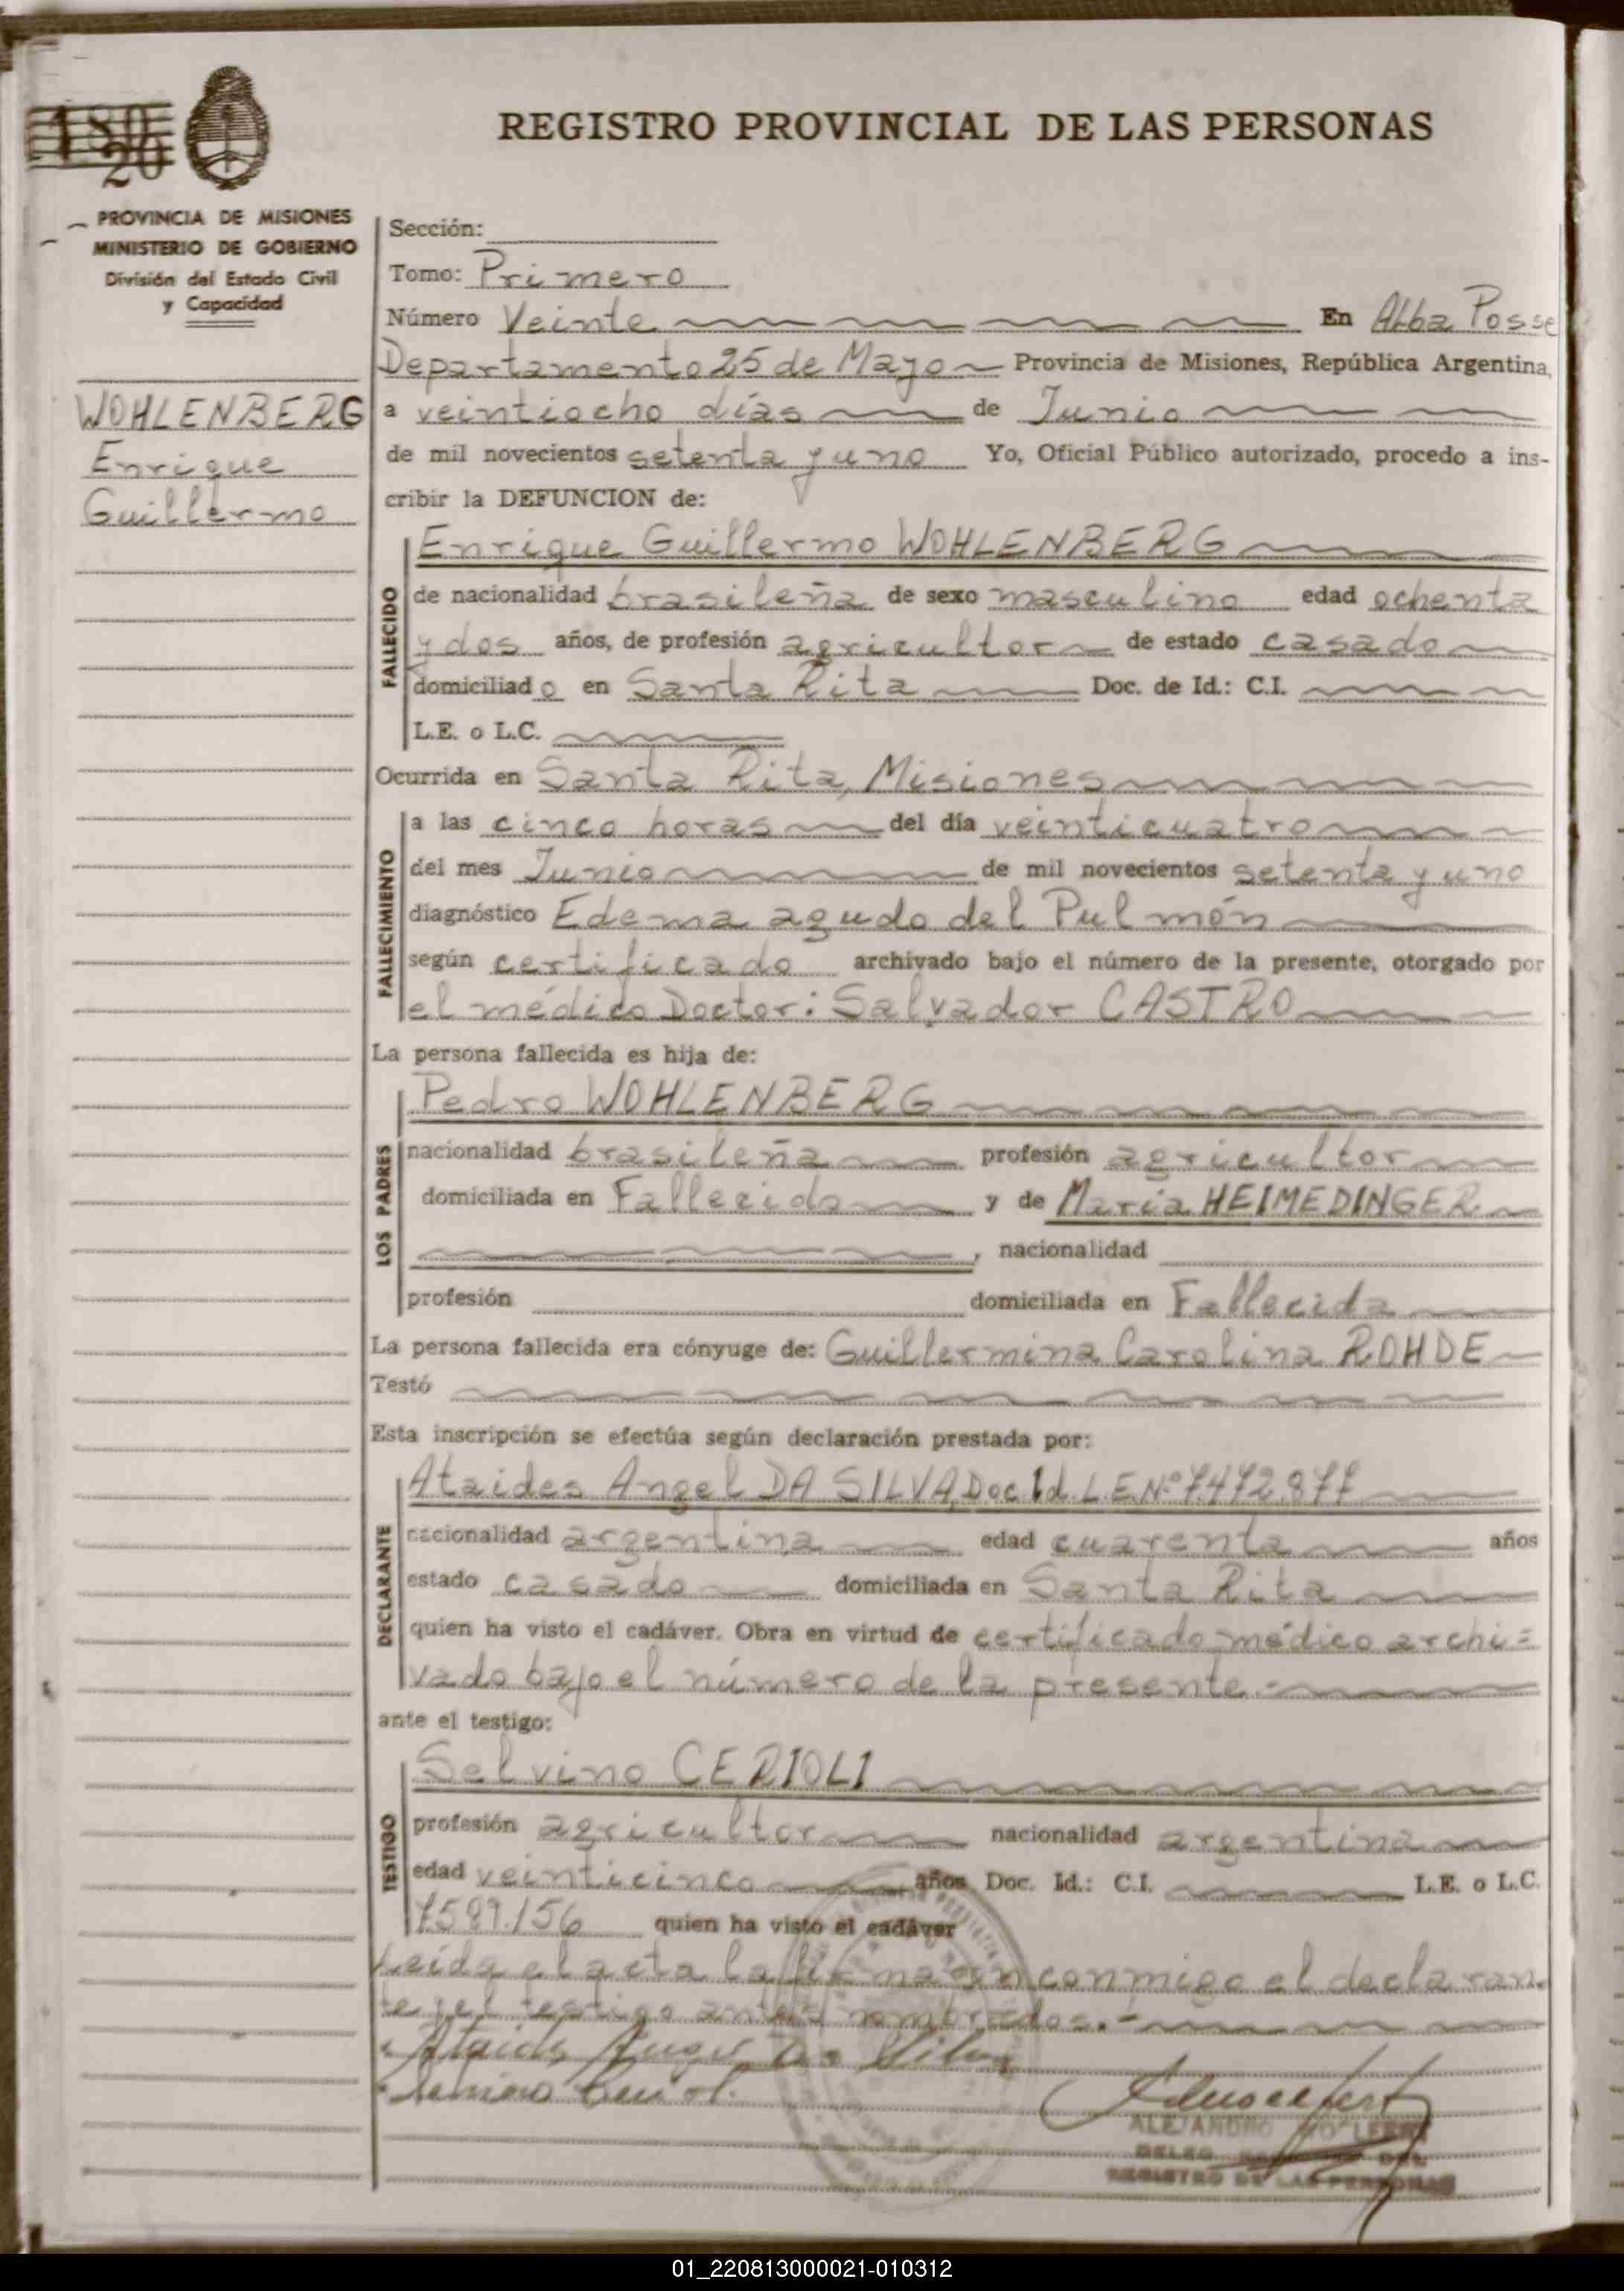 180
20
REGISTRO PROVINCIAL DE LAS PERSONAS
PROVINCIA DE MISIONES
MINISTERIO DE GOBIERNO
División del Estado Civil
y Capacidad
WOHLENBERG
Enrique
Guillermo
Sección:
Tomo: Primero
Número Veinte En Alba Posse
Departamento 25 de Mayo Provincia de Misiones, República Argentina,
a veintiocho días de Junio
de mil novecientos setenta y uno Yo, Oficial Público autorizado, procedo a ins-
cribir la DEFUNCION de:
Enrique Guillermo WOHLENBERG
FALLECIDO
de nacionalidad brasileña de sexo masculino edad ochenta
y dos años, de profesión agricultor de estado casado
domiciliado en Santa Rita Doc. de Id.: C.I.
L.E. o L.C.
Ocurrida en Santa Rita, Misiones
FALLECIMIENTO
a las cinco horas del día veinticuatro
del mes Junio de mil novecientos setenta y uno
diagnóstico Edema agudo del Pulmón
según certificado archivado bajo el número de la presente, otorgado por
el médico Doctor: Salvador CASTRO
La persona fallecida es hija de:
Pedro WOHLENBERG
LOS PADRES
nacionalidad brasileña profesión agricultor
domiciliada en Fallecido y de María HEIMEDINGER
, nacionalidad
profesión domiciliada en Fallecida
La persona fallecida era cónyuge de: Guillermina Carolina ROHDE
Testó
Esta inscripción se efectúa según declaración prestada por:
Ataides Angel DA SILVA, Doc. Id. L.E. Nº 7.472.877
DECLARANTE
nacionalidad argentina edad cuarenta años
estado casado domiciliada en Santa Rita
quien ha visto el cadáver. Obra en virtud de certificado médico archi=
vado bajo el número de la presente.-
ante el testigo:
Selvino CERIOLI
TESTIGO
profesión agricultor nacionalidad argentina
edad veinticinco años Doc. Id.: C.I. L.E. o L.C.
quien ha visto el cadáver
Leída el acta la firman conmigo el declaran-
te y el testigo antes nombrados.-
Ataides Angel Da Silva
ALEJANDRO
REGISTRO DE LAS PERSONAS
01_220813000021-010312